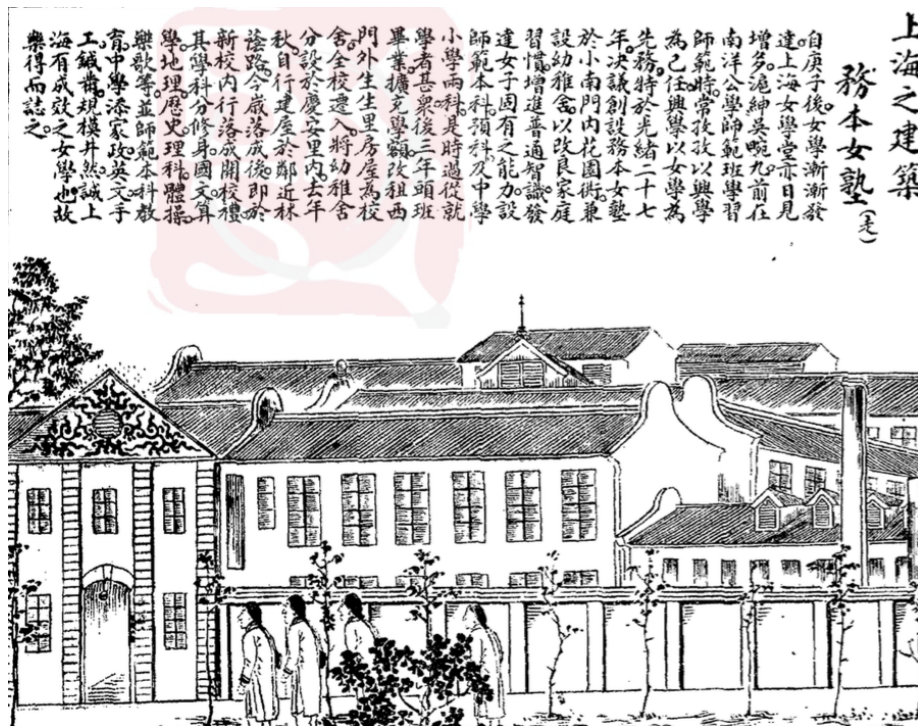 上海之建築
務本女塾(走)
自庚子後女學漸漸發
達上海女學堂亦日見
增多滬紳吳畹九前在
南洋公學師範班學習
師範時常孜孜以興學
為己任興學以女學為
先務特於光緒二十七
年決議創設務本女塾
於小南門內花園衖兼
設幼稚舍以改良家庭
習慣增進普通智識發
達女子固有之能力設
師範本科預科及中學
小學兩科是時過從就
學者甚衆後三年頭班
畢業擴充學額改租西
門外生生里房屋為校
舍全校遷入將幼稚舍
分設於慶安里內去年
秋自行建屋於鄰近林
蔭路今歲落成後即於
新校內行落成開校禮
其學科分修身國文算
學地理歷史理科體操
樂歌等並師範本科教
育中學添家政英文手
工鍼黹規模井然誠上
海有成效之女學也故
樂得而誌之